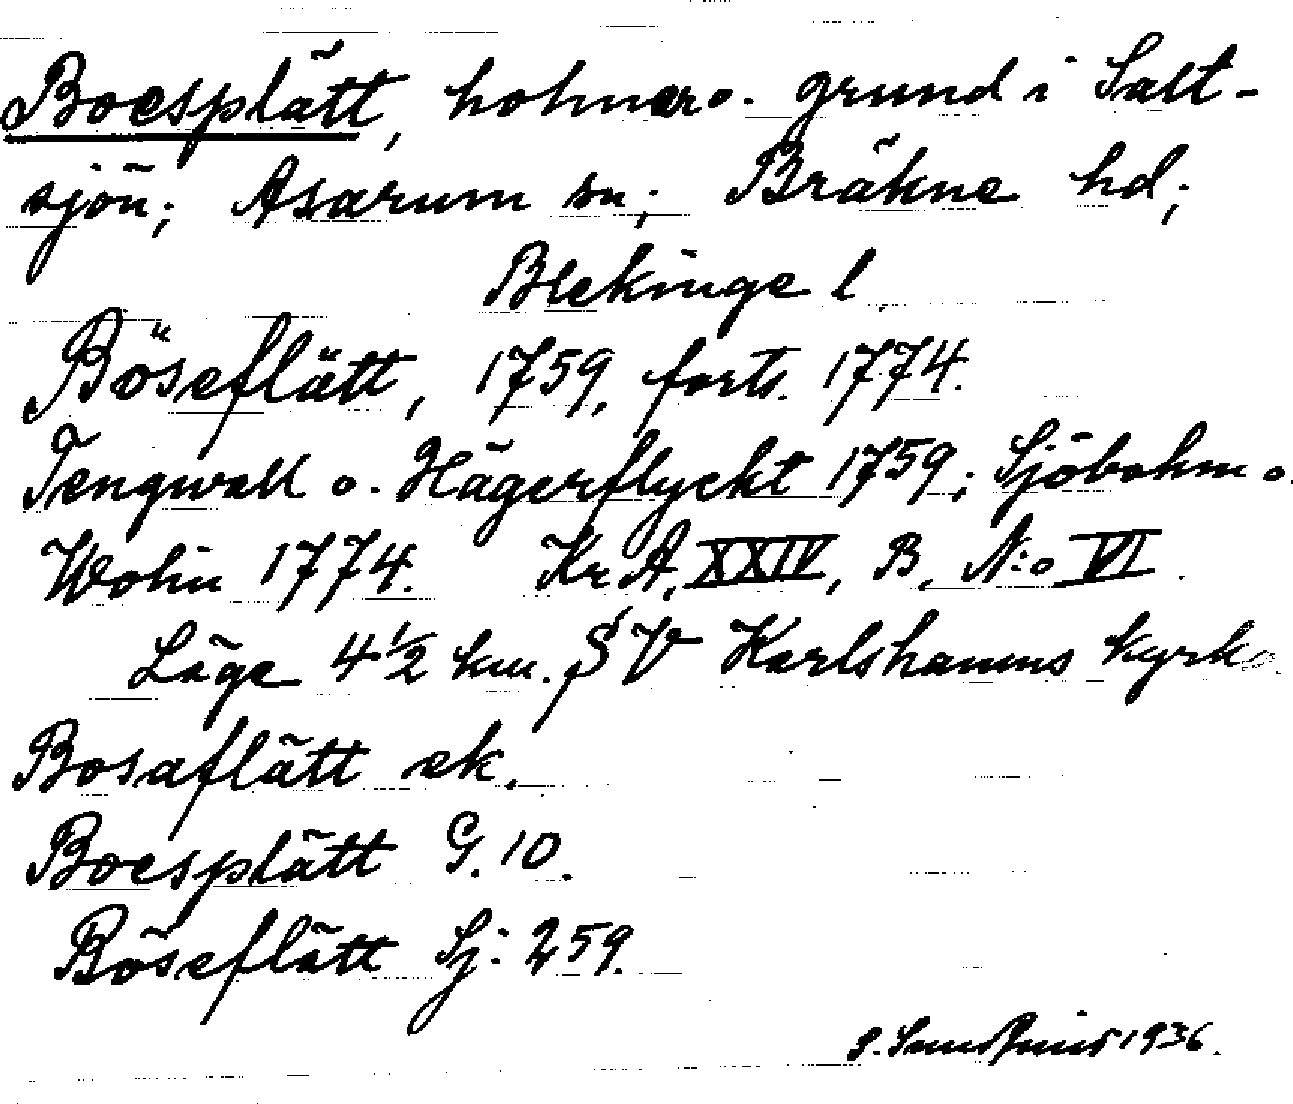 Boesplätt, holmar o. grund i Salt-
sjön; Asarum sn; Bräkne hd;
Blekinge l.
Böseflätt, 1759, forts. 1774.
Tengwall o. Hägerflyckt 1759; Sjöbohm o.
Wohn 1774. Kr A, XXIV, B, N:o VI.
Läge 4 1/2 km. SV Karlshamns kyrka
Bosaflätt ek.
Boesplätt G. 10.
Böseflätt Sj: 259.
1936.